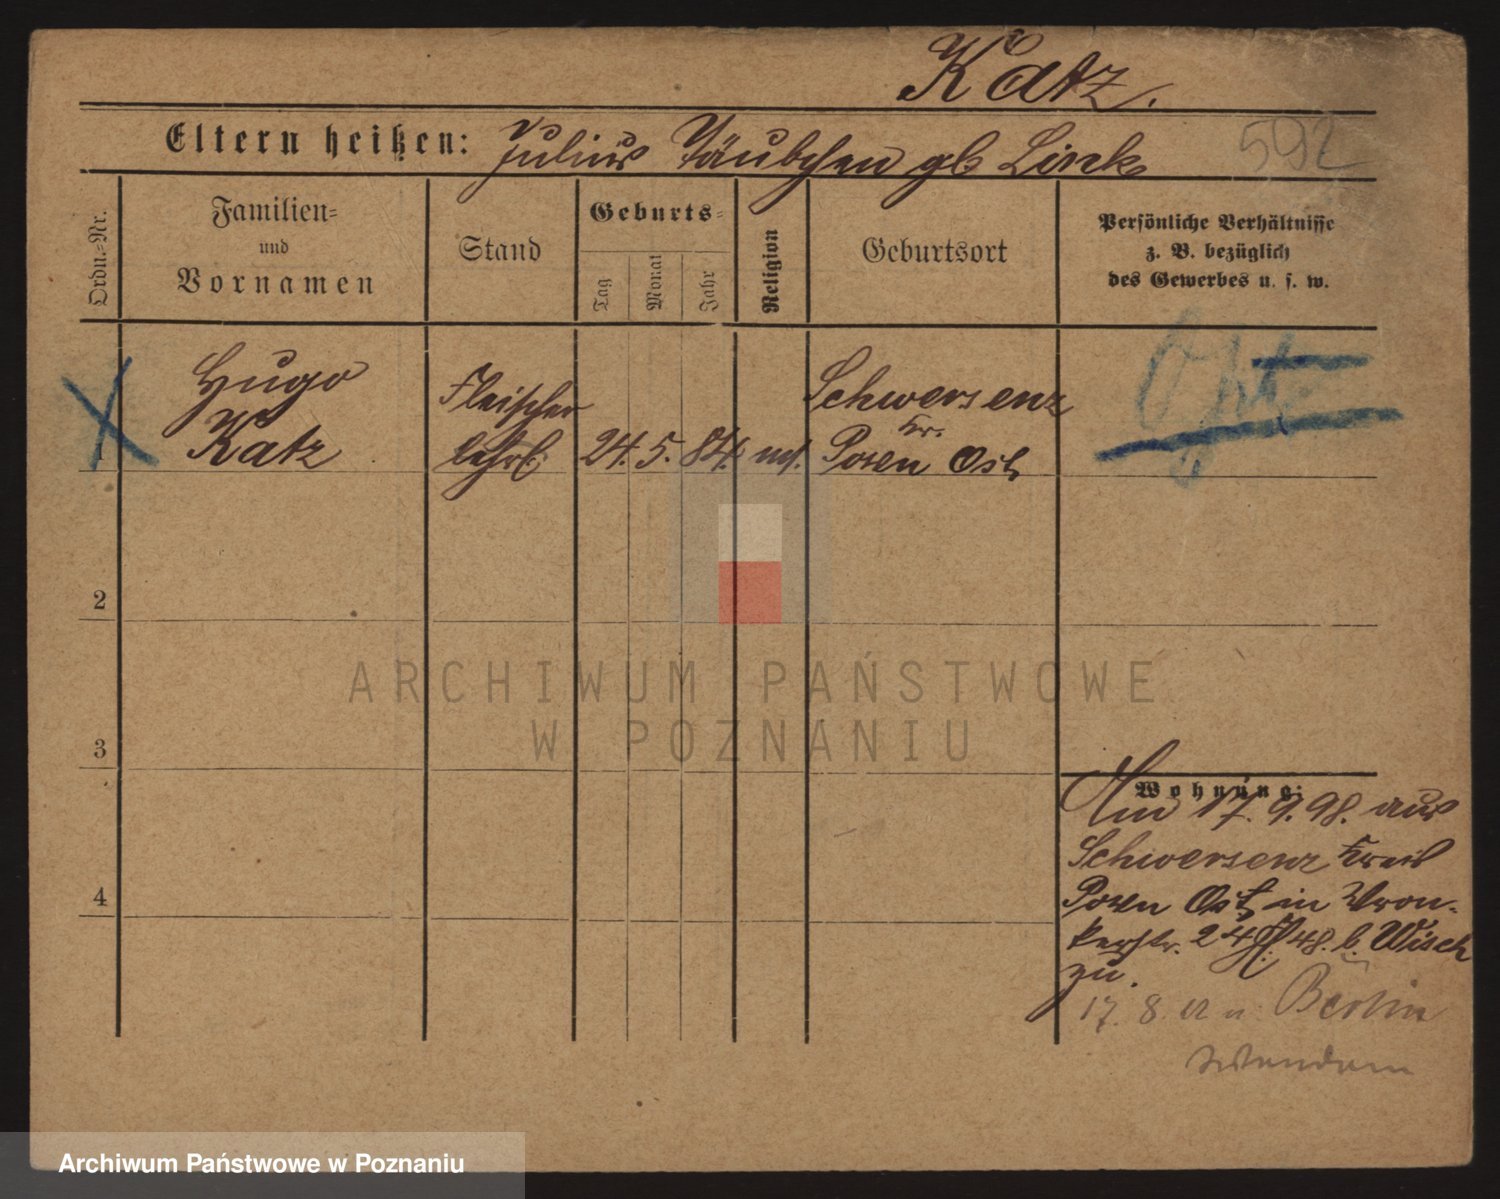 Katz.
592
Eltern heißen: Julius Täubchen gb Linke
Ordn.=Nr.
Familien=
und
Vornamen
Stand
Geburts=
Tag
Monat
Jahr
Religion
Geburtsort
Persönliche Verhältnisse
z. B. bezüglich
des Gewerbes u. s. w.
1
Hugo
Katz
Fleischer
lehrl.
24. 5. 84.
Schwersenz
Kr.
Posen Ost
2
3
4
Wohnung:
Am 17. 9. 98. aus
Schwersenz Kreis
Posen Ost in Wron-
kerstr. 24 48. b. Wisch
zu.
17. 8. n. Berlin
ARCHIWUM PAŃSTWOWE
W POZNANIU
Archiwum Państwowe w Poznaniu